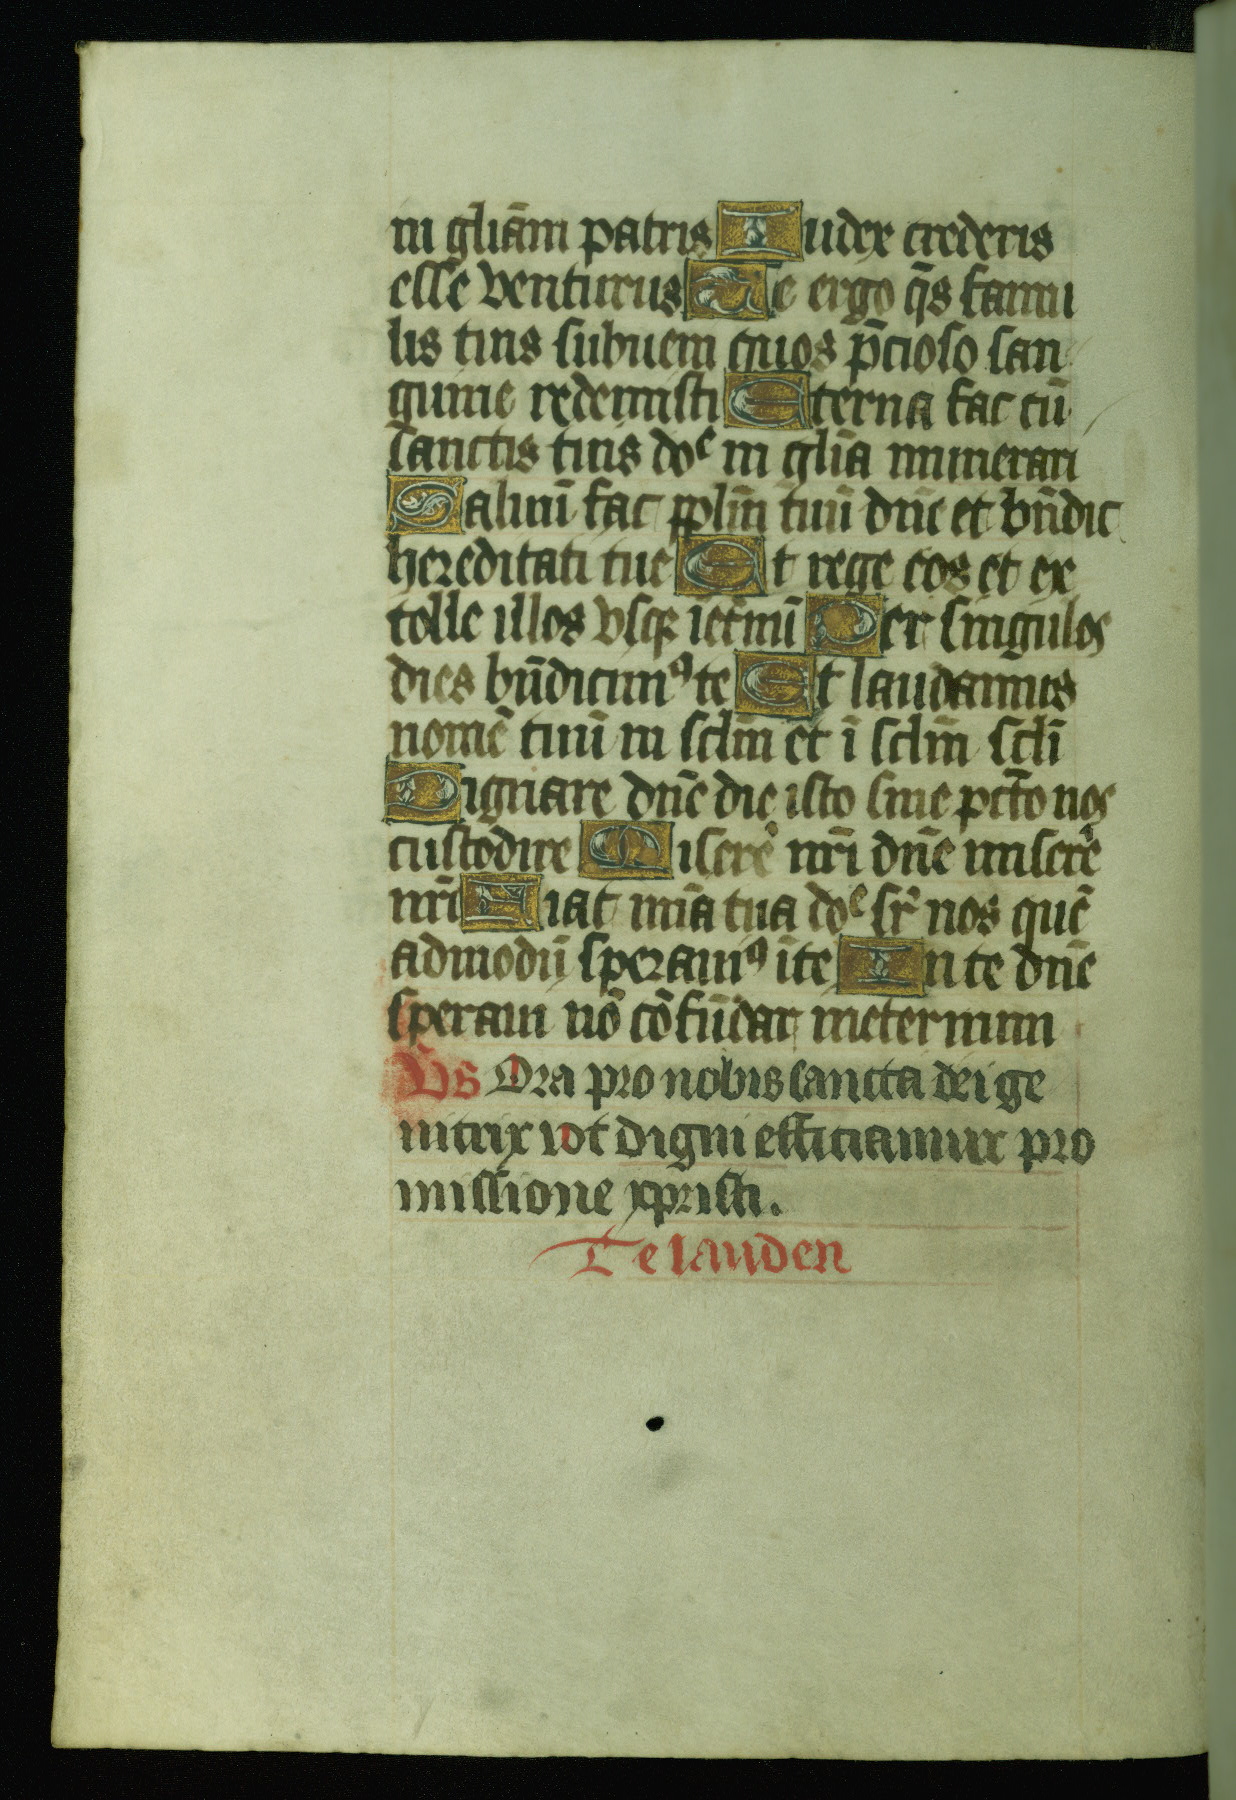 in gliām patris Iudex crederis
esse venturus Te ergo q̄s famu
lis tuis subueni quos p̄cioso san
guine redemisti Eterna fac cū
sanctis tuis doᵉ in gliā munerari
Saluū fac pplm̄ tuū dn̄e et bn̄dic
hereditati tue Et rege eos et ex
tolle illos vsqꝫ iet̄nū Per singulos
dies bn̄dicimꝰ te Et laudamus
nomē tuū in sclm̄ et ī sclm̄ scli̅
Dignare dn̄e die isto sine pctō nos
custodire Miserē nr̄i dn̄e miserē
nr̄i Fiat mīa tua doᵉ sr̄ nos quē
admodū speramꝰ ī te In te dn̄e
speraui nō cōfūdar ineternum
V̄s Ora pro nobis sancta dei ge
nitrix vt digni efficiamur pro
missione xpristi.
Te lauden